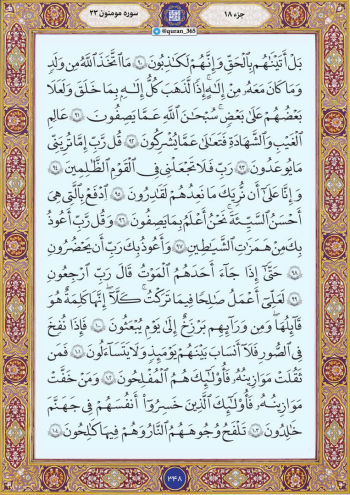 جزء ۱۸
سوره مومنون ۲۳
@quran_365
بَلْ أَتَيْنَٰهُم بِٱلْحَقِّ وَإِنَّهُمْ لَكَٰذِبُونَ ۝٩٠ مَا ٱتَّخَذَ ٱللَّهُ مِن وَلَدٍ
وَمَا كَانَ مَعَهُۥ مِنْ إِلَٰهٍ ۚ إِذًا لَّذَهَبَ كُلُّ إِلَٰهٍۭ بِمَا خَلَقَ وَلَعَلَا
بَعْضُهُمْ عَلَىٰ بَعْضٍ ۚ سُبْحَٰنَ ٱللَّهِ عَمَّا يَصِفُونَ ۝٩١ عَٰلِمِ
ٱلْغَيْبِ وَٱلشَّهَٰدَةِ فَتَعَٰلَىٰ عَمَّا يُشْرِكُونَ ۝٩٢ قُل رَّبِّ إِمَّا تُرِيَنِّي
مَا يُوعَدُونَ ۝٩٣ رَبِّ فَلَا تَجْعَلْنِي فِي ٱلْقَوْمِ ٱلظَّٰلِمِينَ ۝٩٤
وَإِنَّا عَلَىٰٓ أَن نُّرِيَكَ مَا نَعِدُهُمْ لَقَٰدِرُونَ ۝٩٥ ٱدْفَعْ بِٱلَّتِي هِيَ
أَحْسَنُ ٱلسَّيِّئَةَ ۚ نَحْنُ أَعْلَمُ بِمَا يَصِفُونَ ۝٩٦ وَقُل رَّبِّ أَعُوذُ
بِكَ مِنْ هَمَزَٰتِ ٱلشَّيَٰطِينِ ۝٩٧ وَأَعُوذُ بِكَ رَبِّ أَن يَحْضُرُونِ
۝٩٨ حَتَّىٰٓ إِذَا جَآءَ أَحَدَهُمُ ٱلْمَوْتُ قَالَ رَبِّ ٱرْجِعُونِ
۝٩٩ لَعَلِّيٓ أَعْمَلُ صَٰلِحًا فِيمَا تَرَكْتُ ۚ كَلَّآ ۚ إِنَّهَا كَلِمَةٌ هُوَ
قَآئِلُهَا ۖ وَمِن وَرَآئِهِم بَرْزَخٌ إِلَىٰ يَوْمِ يُبْعَثُونَ ۝١٠٠ فَإِذَا نُفِخَ
فِي ٱلصُّورِ فَلَآ أَنسَابَ بَيْنَهُمْ يَوْمَئِذٍ وَلَا يَتَسَآءَلُونَ ۝١٠١ فَمَن
ثَقُلَتْ مَوَٰزِينُهُۥ فَأُو۟لَٰٓئِكَ هُمُ ٱلْمُفْلِحُونَ ۝١٠٢ وَمَنْ خَفَّتْ
مَوَٰزِينُهُۥ فَأُو۟لَٰٓئِكَ ٱلَّذِينَ خَسِرُوٓا۟ أَنفُسَهُمْ فِي جَهَنَّمَ
خَٰلِدُونَ ۝١٠٣ تَلْفَحُ وُجُوهَهُمُ ٱلنَّارُ وَهُمْ فِيهَا كَٰلِحُونَ ۝١٠٤
۳۴۸